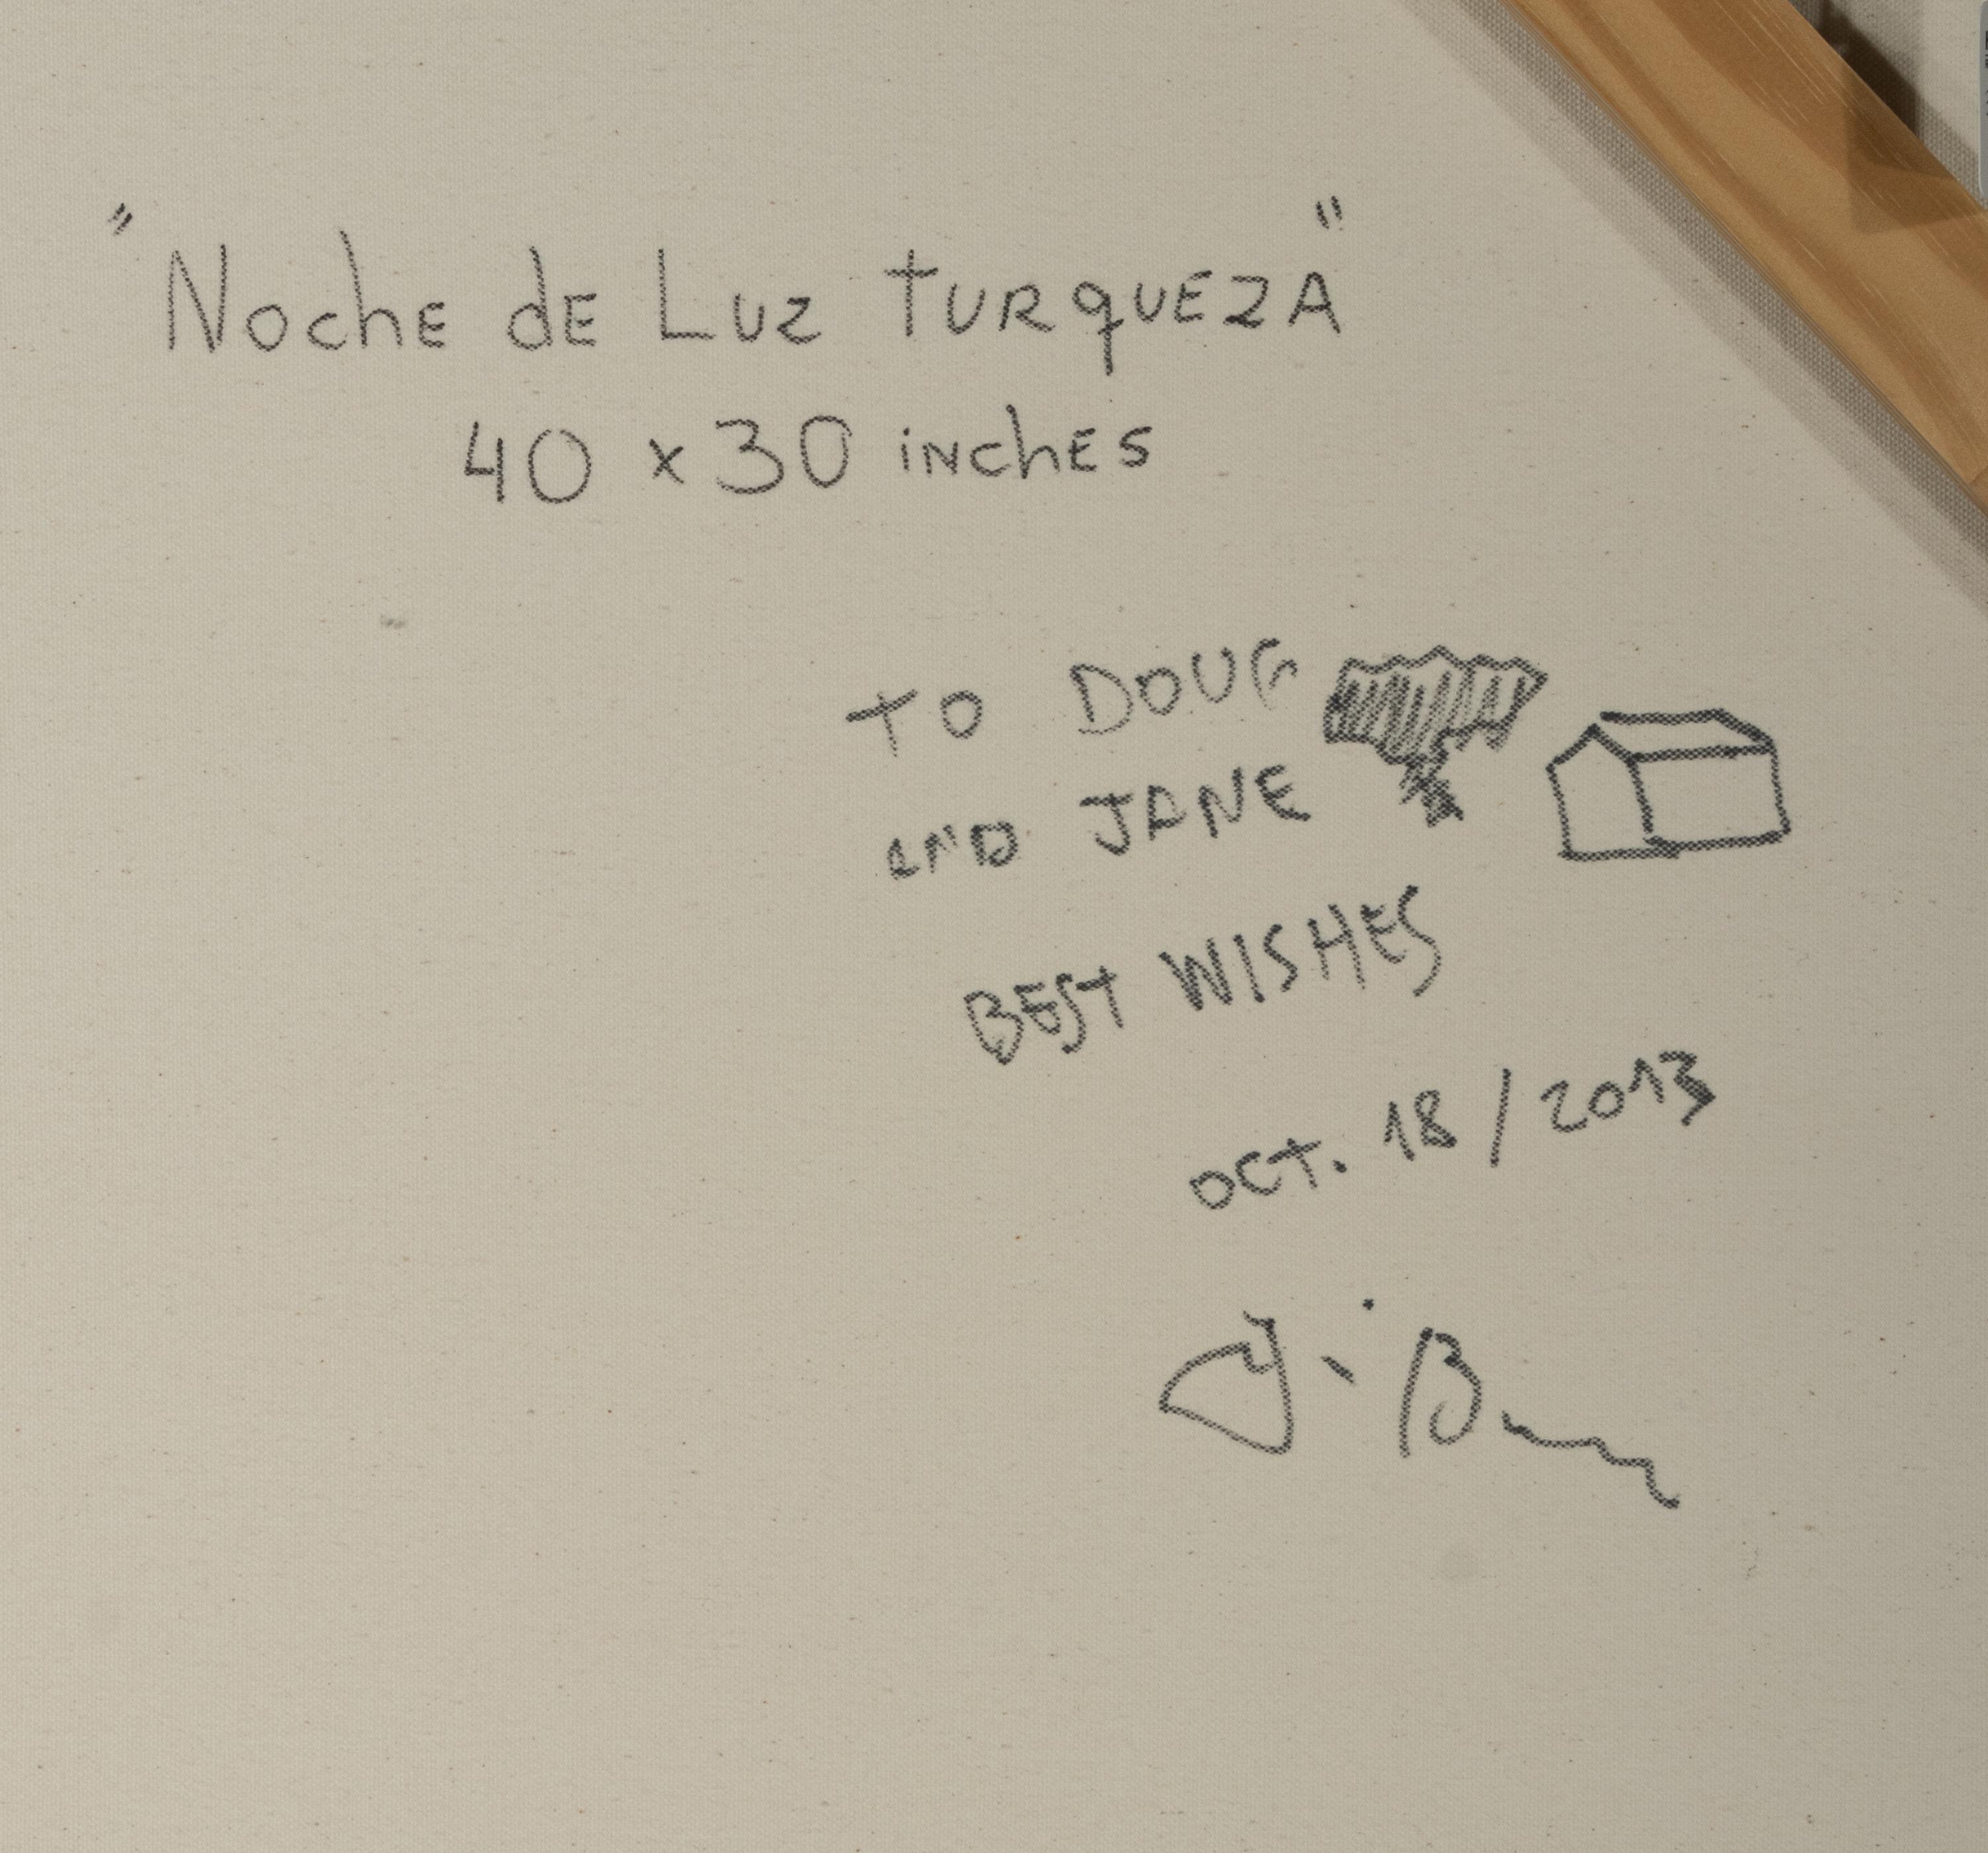 "Noche de Luz Turqueza"
40 x 30 inches
TO DOUG
AND JANE
BEST WISHES
OCT. 18 / 2013